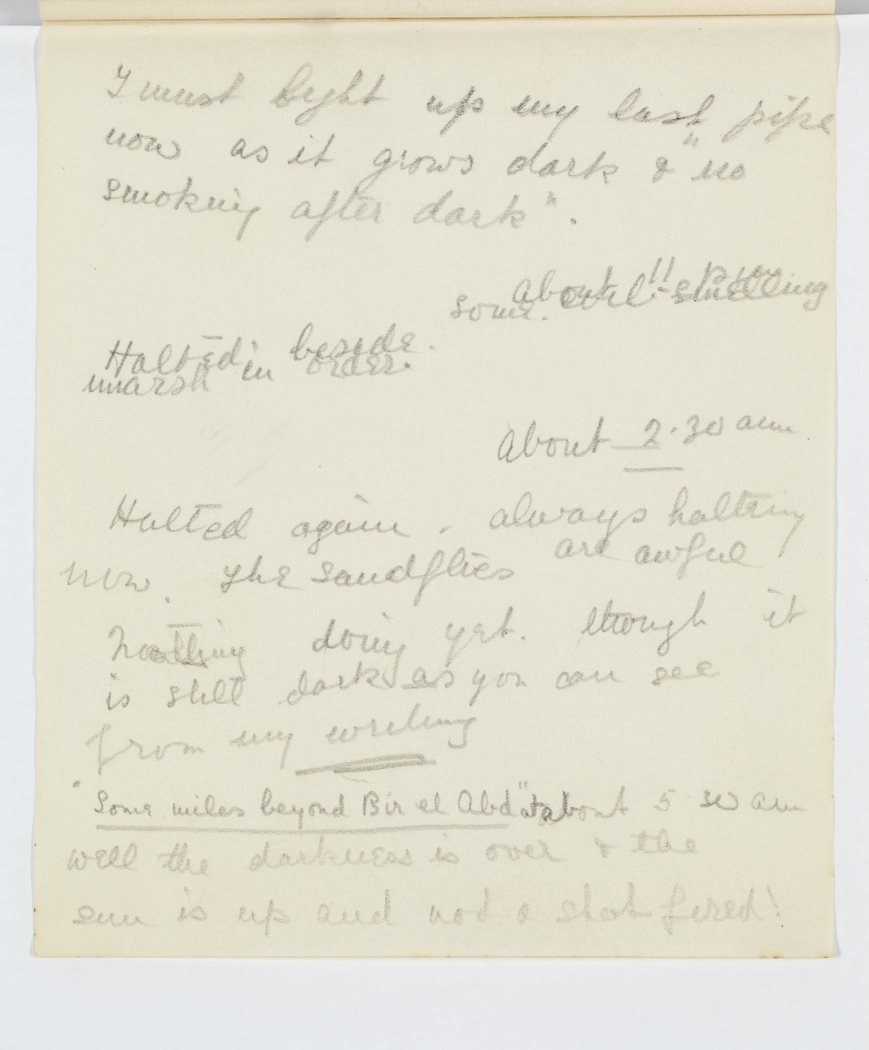 I must light up my last pipe
now as it grows dark & "no
smoking after dark".
About 11
some evil-smelling
Halted in beside
marsh in order.
About 2.30 am
Halted again. always halting
now. The sandflies are awful
Nothing doing yet. though it
is still dark as you can see
from my writing
"Some miles beyond Bir el Abd" about 5 30 am
well the darkness is over & the
sun is up and not a shot fired!